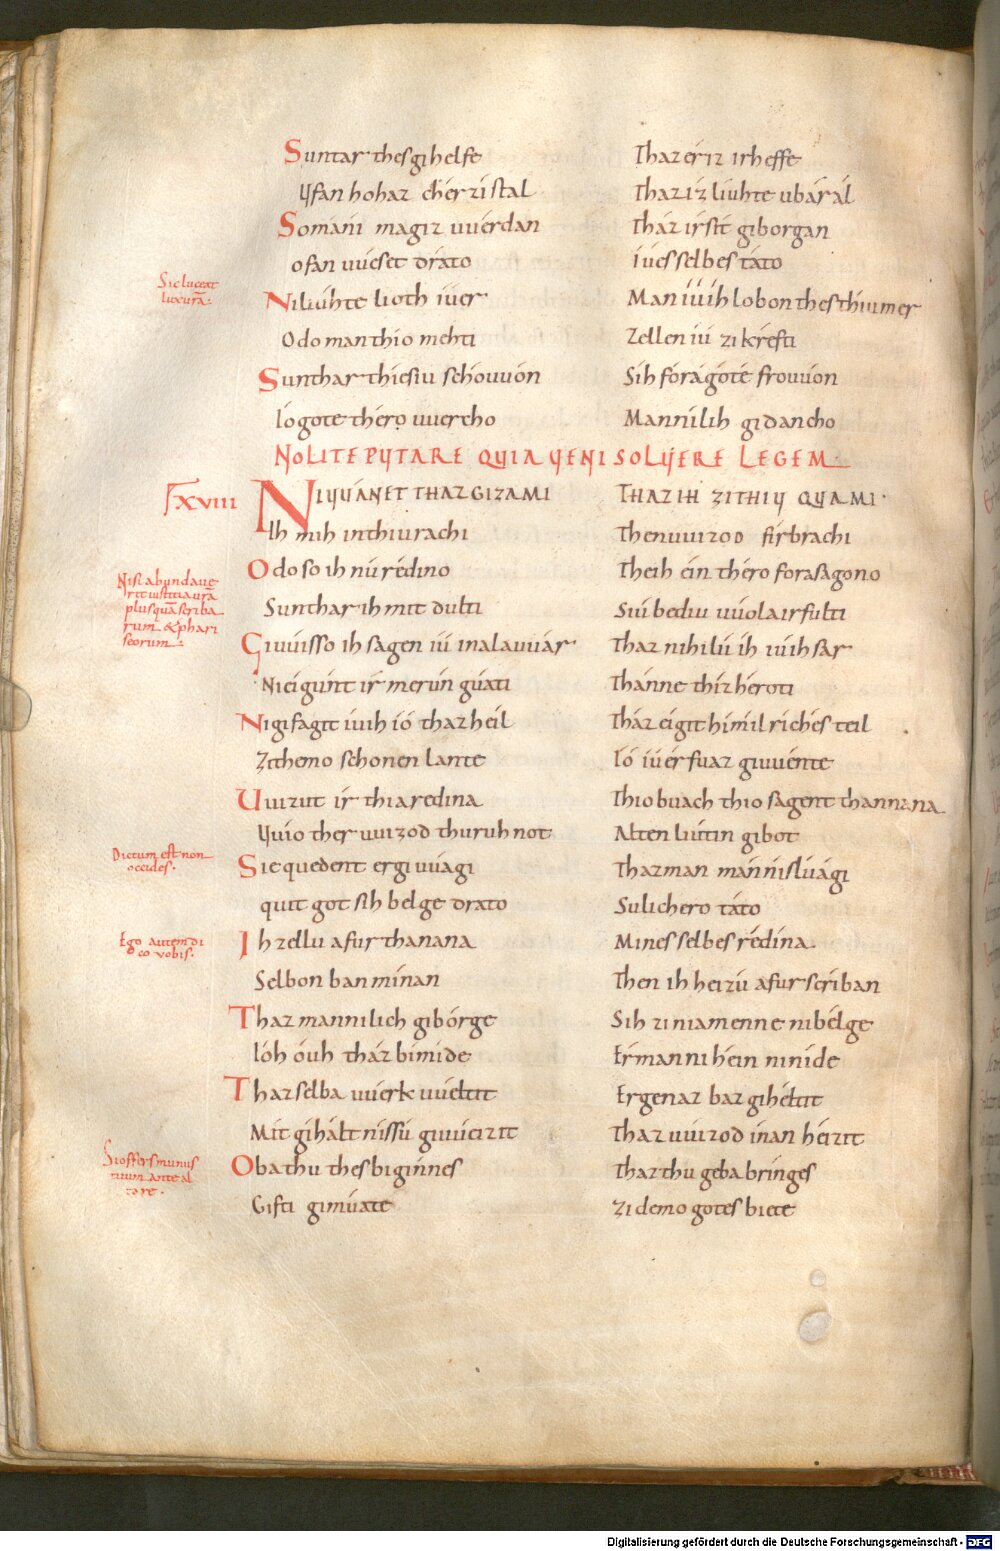 Suntar thes gihelfe Thaz er iz irheffe
Ufan hohaz cherzistal Thaz iz liuhte ubar ál
So máni mag iz uuérdan Tház irstít giborgan
ofan uueset dráto iúes selbes táto
Sic luceat
lux urā·
Niliuhte lioth iúer Man iúih lobon thes thiu mer
Odo man thio mehti Zellen iú zi krefti
Sunthar thie siu scóuuón Sih fora góte frouuón
ló gote théro uuercho Mannilih gidancho
NOLITE PUTARE QUIA VENI SOLVERE LEGEM
XVIII NI UUÁNET THAZ GIZAMI THAZ IH ZI THIU QUAMI·
Ih mih inthiu rachi Then uuizod firbrachi
Odo so ih nú rédino Theih éin théro forasagono
Sunthar ih mit dulti Siú bediu uuola irfulti
Nisi abundaue
rit iustitia urā
plus quā scriba
rum & phari
seorum
Giuuisso ih sagen iú in alauuár Thaz nihilú ih iúih sár
Ni eigúnt ír merún gúati Thánne thíz héroti
Nigifagit iúih ió thaz heil Tház eigit hímilriches teil
Zi themo schonen lante Ió iúer fuaz giuuénte
Uuizut ír thia redina Thio buach thio sagent thannana
Uuio ther uuizod thuruh not Alten liútin gibot
Dictum est non
occides·
Sie quedent er giuuúagi Thaz man mánnislúagi
quit got sih belge drato Sulichero táto
Ego autem di
co vobis·
Ih zellu afur thanana Mines selbes rédina·
Selbon ban mínan Then ih heizú afur scríban
Thaz mannilich gibórge Sih zi niamenne nibélge
Ióh óuh tház bimide Er mannihéin ninide
Thaz selba uuérk uuéltit Er genaz baz gihéltit
Mit gihált nissú giuuéizit Thaz uuizod ínan héizit
Si offers munus
tuum ante al
tare·
Oba thu thes bigínnes Thaz thu geba brínges
Gifti gimúate Zi demo gotes biete
Digitalisierung gefördert durch die Deutsche Forschungsgemeinschaft - DFG